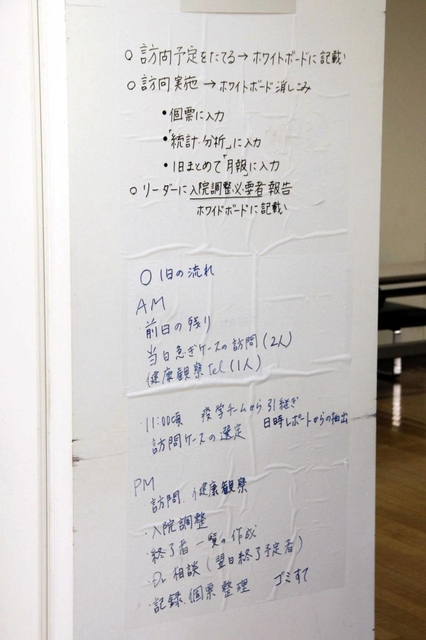 ○ 訪問予定をたてる → ホワイトボードに記載い
○ 訪問実施 → ホワイトボード消しこみ
• 個票に入力
•「統計・分析」に入力
• 1日まとめて「月報」に入力
○ リーダーに入院調整必要者報告
ホワイドボードに記載い
○ 1日の流れ
AM
前日の残り
当日急ぎケースの訪問 (2人)
健康観察tel (1人)
・11:00頃 疫学チームから引継ぎ
訪問ケースの選定 日時レポートからの抽出
PM
訪問、健康観察
・入院調整
・終了者一覧の作成
・Dr相談 (翌日終了予定者)
・記録、個票整理 ゴミすて